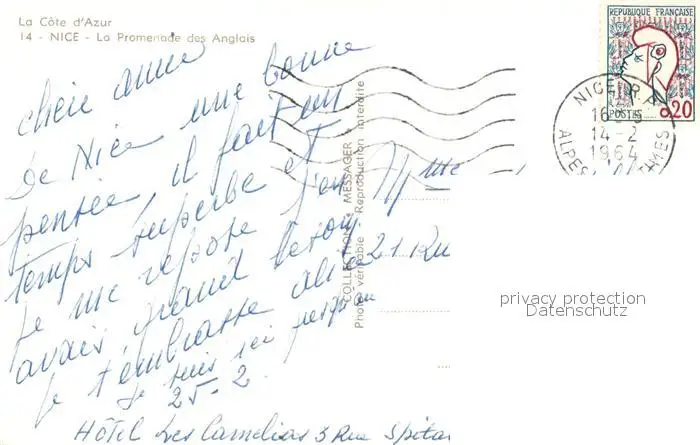 La Côte d'Azur
14 - NICE - La Promenade des Anglais
chère amie
De Nice une bonne
pensée, il fait un
temps superbe et
je me repose j'en
avais grand besoin
je t'embrasse
je suis ici jusqu'au
25-2
Hôtel Les Camélias 3 Rue Spitar
COLLECTION MESSAGER
Photo véritable Reproduction interdite
Mme
21 Ru
REPUBLIQUE FRANÇAISE
0,20
POSTES
NICE R.P.
16
14-2
1964
ALPES MMES
privacy protection
Datenschutz